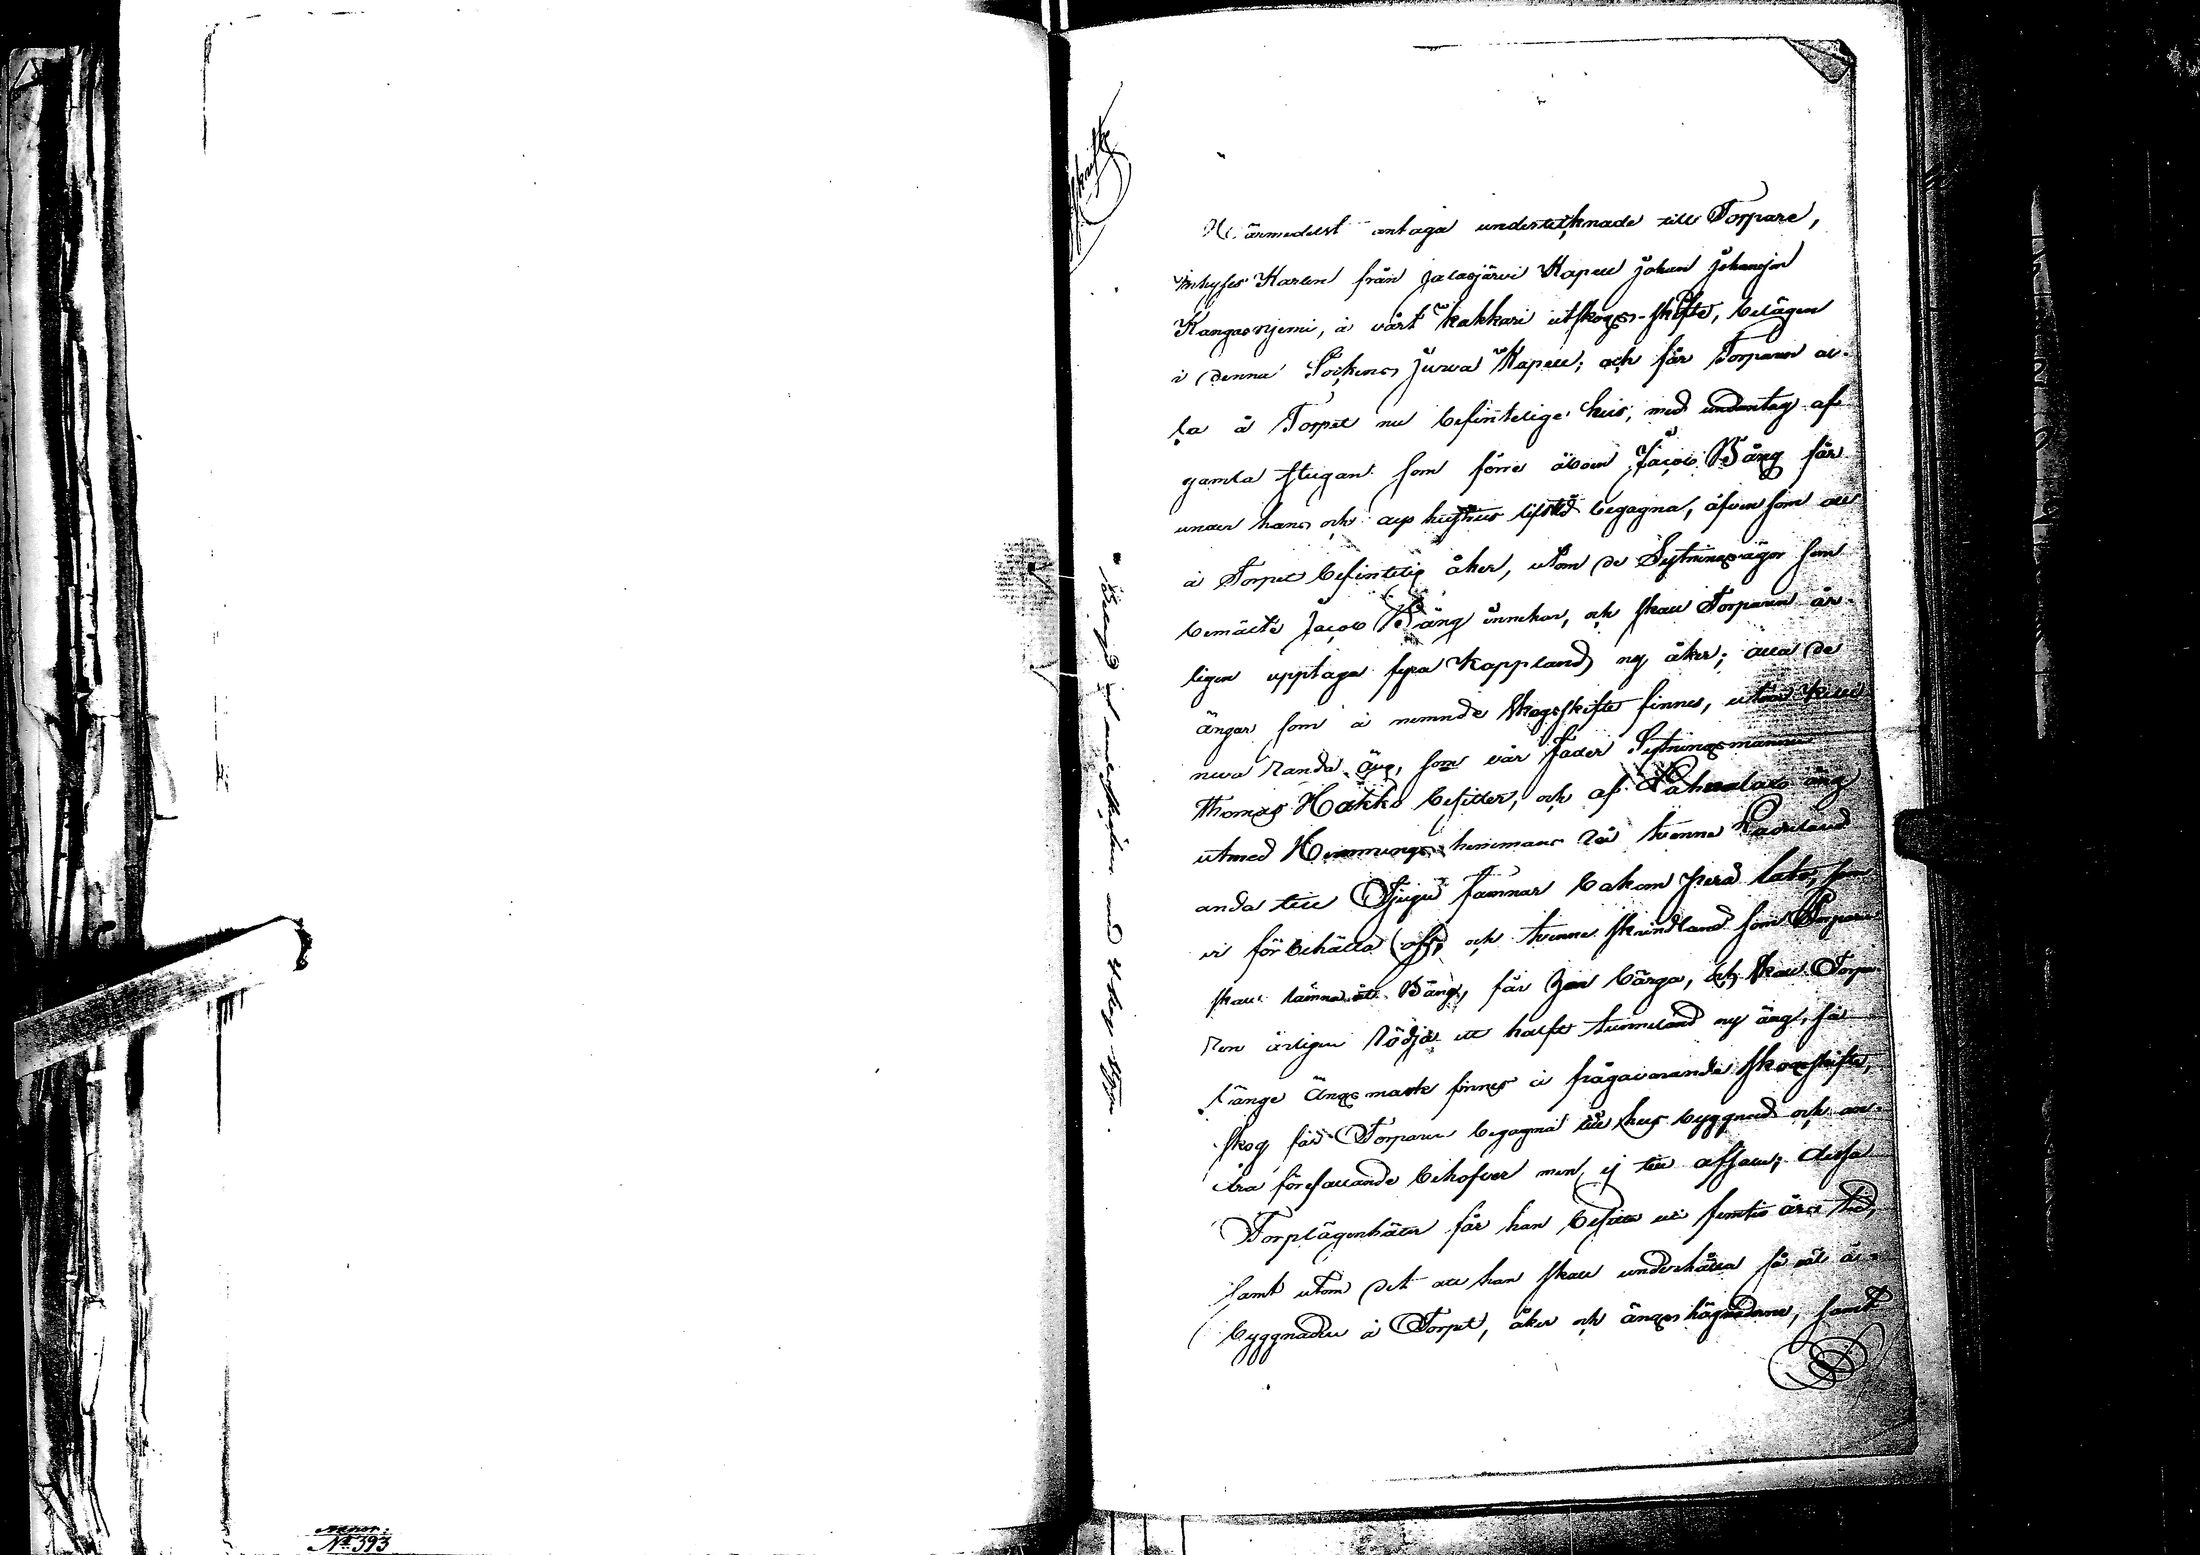 Afskrift
Härmedelst antaga undertecknade till Torpare,
Inhyses Karlen från Jalasjärvi Kapell Johan Johansson
Kangasniemi, å vårt Kakkari utskogs-skifte, belägen
i denna Sockens Jurva Kapell; och får Torparen al-
la å Torpet nu befintelige hus, med undantag af
gamla stugan som förre åboen Jacob Bäng får
under hans och dess hustrus lifstid begagna, äfvensom all
å Torpet befintelig åker, utom de Sytningsägor som
bemälte Jacob Bäng innehar, och skall Torparen år-
ligen upptaga fyra Kappland ny åker; alla de
ängar som å nemnde skogsskifte finnes, utom
neva randa äng, som vår Fader Sytningsmannen
Thomas Hakko besitter, och af äng
utmed Hemmings hemmans rå tvenne
anda till Tjugu famnar bakom Perä lato, som
vi förbehålla oss, och tvenne skrindland som Torparen
skall lämna åt Bäng, får han bärga, och skall Torpa-
ren årligen rödja ett halft tunneland ny äng, så
länge Ängsmark finnes å frågavarande skogsskifte,
skog får Torparen begagna till hus byggnad och an-
dra förefallande behofver men ej till afsalu; dessa
Torplägenhäter får han besitta uti femtio års tid,
samt utom det att han skall underhålla så väl å-
byggnaden å Torpet, åker och ängshägnaderne, samt
N:o 393